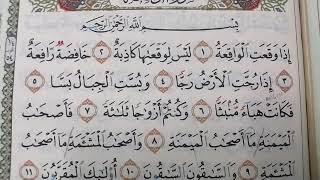 بِسْمِ اللَّهِ الرَّحْمَٰنِ الرَّحِيمِ
إِذَا وَقَعَتِ الْوَاقِعَةُ ١ لَيْسَ لِوَقْعَتِهَا كَاذِبَةٌ ٢ خَافِضَةٌ رَّافِعَةٌ
٣ إِذَا رُجَّتِ الْأَرْضُ رَجًّا ٤ وَبُسَّتِ الْجِبَالُ بَسًّا ٥
فَكَانَتْ هَبَاءً مُّنْبَثًّا ٦ وَكُنتُمْ أَزْوَاجًا ثَلَاثَةً ٧ فَأَصْحَابُ
الْمَيْمَنَةِ مَا أَصْحَابُ الْمَيْمَنَةِ ٨ وَأَصْحَابُ الْمَشْأَمَةِ مَا أَصْحَابُ
الْمَشْأَمَةِ ٩ وَالسَّابِقُونَ السَّابِقُونَ ١٠ أُولَٰئِكَ الْمُقَرَّبُونَ ١١